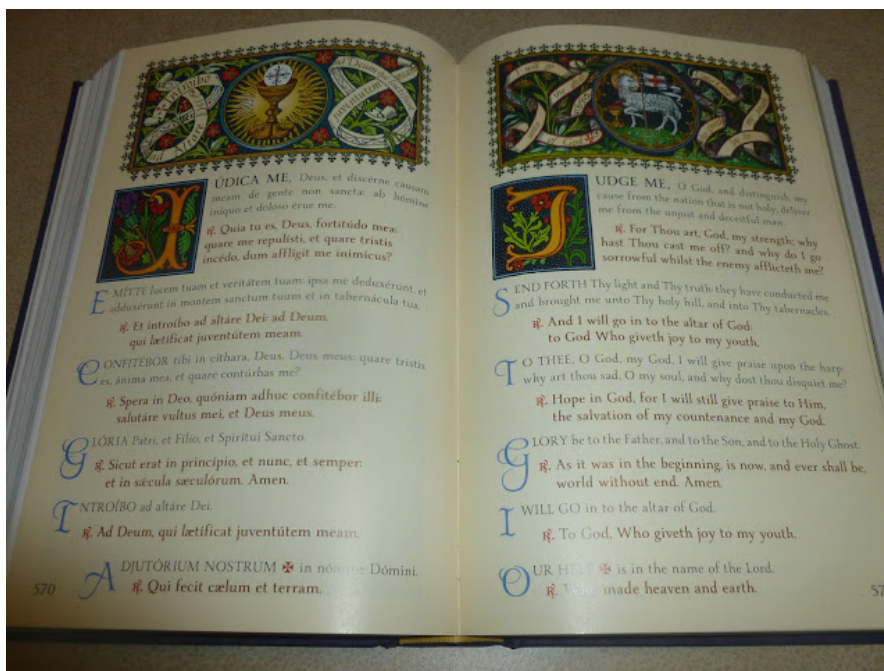 Introibo
ad altare
ad Deum qui laetificat
juventutem meam
ÚDICA ME, Deus, et discérne causam
meam de gente non sancta: ab hómine
iníquo et dolóso érue me.
℟. Quia tu es, Deus, fortitúdo mea:
quare me repulísti, et quare tristis
incédo, dum afflígit me inimícus?
EMÍTTE lucem tuam et veritátem tuam: ipsa me deduxérunt, et
adduxérunt in montem sanctum tuum et in tabernácula tua.
℟. Et introíbo ad altáre Dei: ad Deum,
qui lætíficat juventútem meam.
CONFITÉBOR tibi in cíthara, Deus, Deus meus: quare tristis
es, ánima mea, et quare contúrbas me?
℟. Spera in Deo, quóniam adhuc confitébor illi:
salutáre vultus mei, et Deus meus.
GLÓRIA Patri, et Fílio, et Spirítui Sancto.
℟. Sicut erat in princípio, et nunc, et semper:
et in sǽcula sæculórum. Amen.
INTROÍBO ad altáre Dei.
℟. Ad Deum, qui lætíficat juventútem meam.
ADJUTÓRIUM NOSTRUM ✠ in nómine Dómini.
℟. Qui fecit cælum et terram.
570
I will go
of God
JUDGE ME, O God, and distinguish my
cause from the nation that is not holy; deliver
me from the unjust and deceitful man.
℟. For Thou art, God, my strength; why
hast Thou cast me off? and why do I go
sorrowful whilst the enemy afflicteth me?
SEND FORTH Thy light and Thy truth: they have conducted me
and brought me unto Thy holy hill, and into Thy tabernacles.
℟. And I will go in to the altar of God:
to God Who giveth joy to my youth.
TO THEE, O God, my God, I will give praise upon the harp:
why art thou sad, O my soul, and why dost thou disquiet me?
℟. Hope in God, for I will still give praise to Him,
the salvation of my countenance and my God.
GLORY be to the Father, and to the Son, and to the Holy Ghost.
℟. As it was in the beginning, is now, and ever shall be,
world without end. Amen.
I WILL GO in to the altar of God.
℟. To God, Who giveth joy to my youth.
OUR HELP ✠ is in the name of the Lord.
℟. Who made heaven and earth.
57